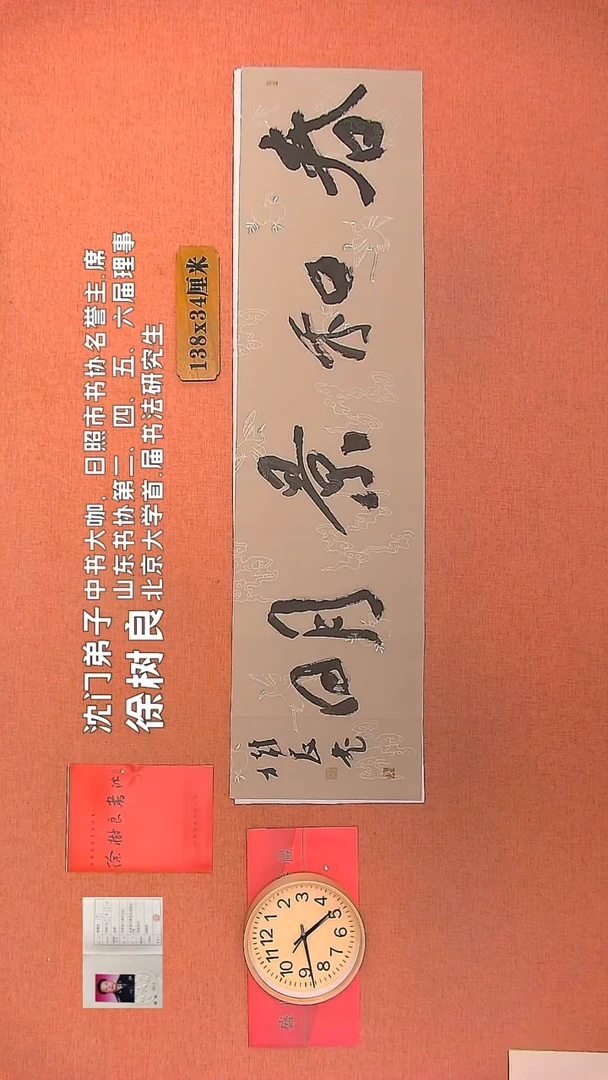 沈门弟子 中书大咖，日照市书协名誉主席
山东书协第二、四、五、六届理事
徐树良 北京大学首届书法研究生
138x34厘米
春和景明
徐樹良书法
12
1
2
3
4
5
6
7
8
9
10
11